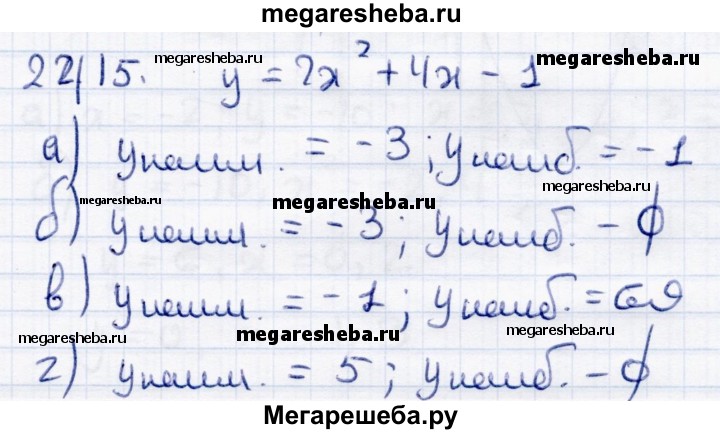 megaresheba.ru
22.15. megaresheba.ru y = 2x² + 4x - 1 megaresheba.ru
а) yнаим. = -3; yнаиб. = -1
megaresheba.ru megaresheba.ru megaresheba.ru
б) yнаим. = -3; yнаиб. - ∅
в) yнаим. = -1; yнаиб. = 69
megaresheba.ru megaresheba.ru megaresheba.ru
г) yнаим. = 5; yнаиб. - ∅
Мегарешеба.ру